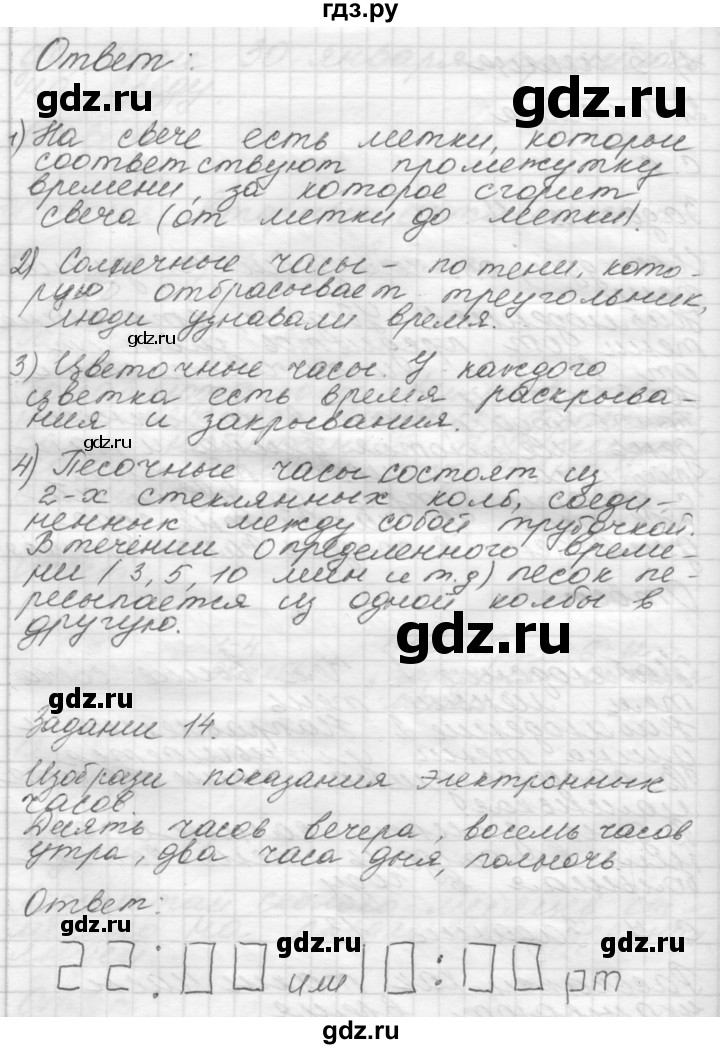 гдз.ру
Ответ:
gdz.ru
gdz.ru
1) На свече есть метки, которые
соответствуют промежутку
времени, за которое сгорит
gdz.ru
gdz.ru
свеча (от метки до метки).
2) Солнечные часы - по тени, кото-
рую отбрасывает треугольник,
люди узнавали время.
gdz.ru
3) Цветочные часы. У каждого
цветка есть время раскрыва-
ния и закрывания.
gdz.ru
gdz.ru
4) Песочные часы состоят из
2-х стеклянных колб, соеди-
ненных между собой трубочкой.
В течении определенного време-
ни (3, 5, 10 мин и т.д) песок пе-
ресыпается из одной колбы в
другую.
gdz.ru
gdz.ru
Задание 14.
gdz.ru
Изобрази показания электронных
часов.
Десять часов вечера, восемь часов
утра, два часа дня, полночь.
Ответ:
gdz.ru
gdz.ru
gdz.ru
22:00 или 10:00 pm
gdz.ru